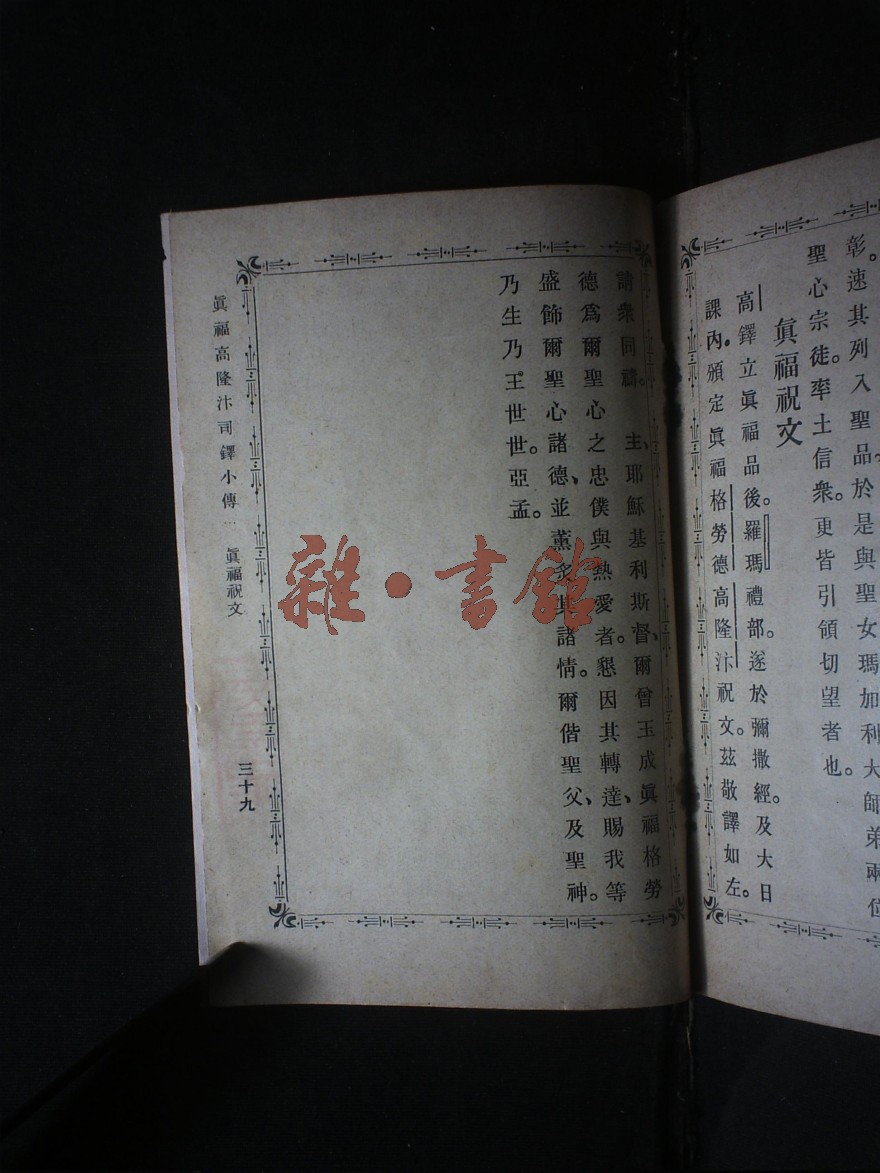 彰。速其列入聖品。於是與聖女瑪加利大師弟兩位
聖心宗徒。率土信衆。更皆引領切望者也。
眞福祝文
高鐸立眞福品後。羅瑪禮部。遂於彌撒經。及大日
課內。頒定眞福格勞德高隆汴祝文。茲敬譯如左。
請衆同禱。 主、耶穌基利斯督、爾曾玉成眞福格勞
德爲爾聖心之忠僕與熱愛者。懇因其轉達、賜我等
盛飾爾聖心諸德、並薰炙其諸情。爾偕聖父、及聖神。
乃生乃王。世世。亞孟。
眞福高隆汴司鐸小傳 … 眞福祝文
三十九
雜·書館